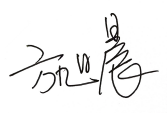 方旭晨